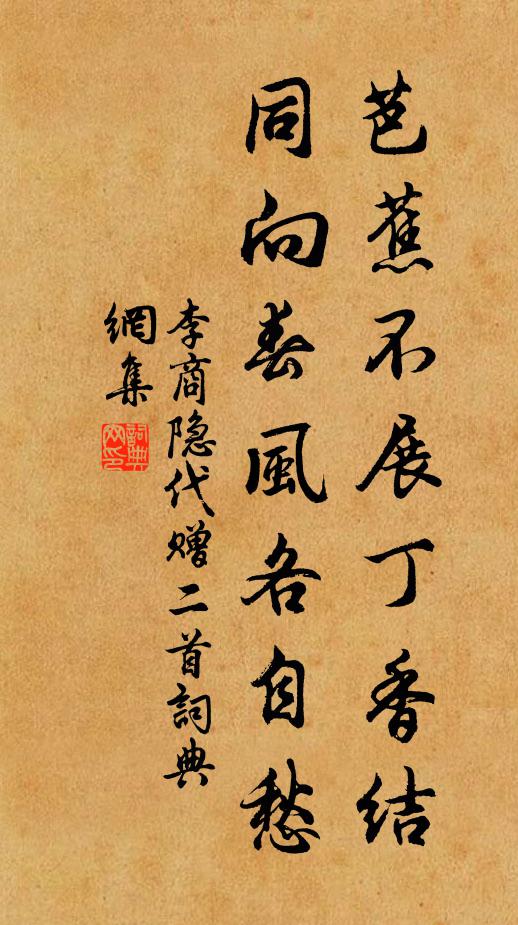 芭蕉不展丁香结
同向春風各自愁
李商隐代赠二首詞典
網集
詞典
网印